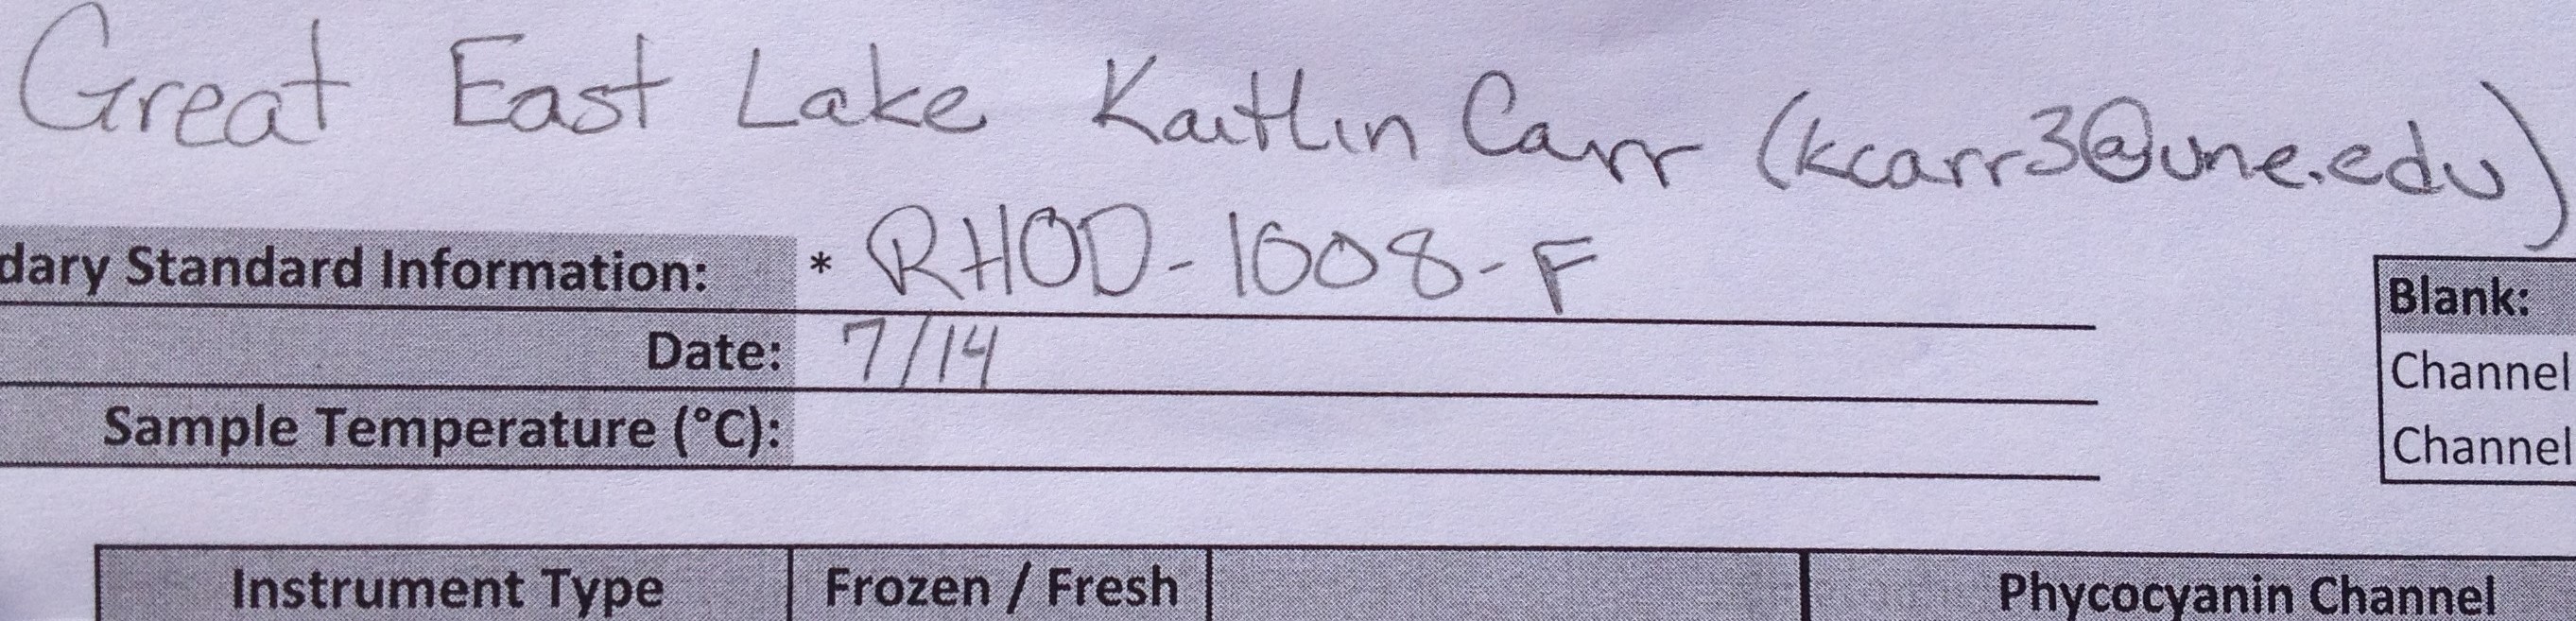 Great East Lake Kaitlin Carr (kcarr3@une.edu)
dary Standard Information: * RHOD-1008-F
Date: 7/14
Sample Temperature (°C):
Blank:
Channel
Channel
Instrument Type Frozen / Fresh Phycocyanin Channel